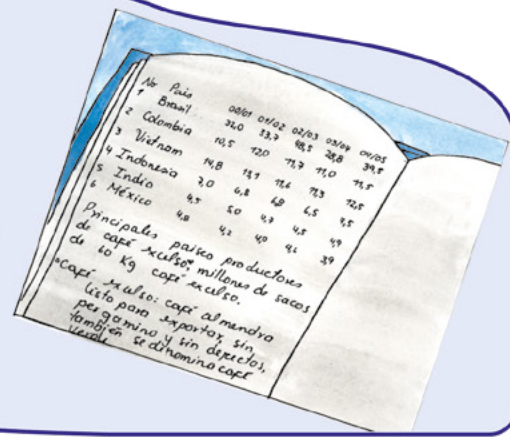 No País 00/01 01/02 02/03 03/04 04/05
1 Brasil 32,0 33,7 48,5 28,8 39,5
2 Colombia 10,5 12,0 11,7 11,0 11,5
3 Vietnam 14,8 13,1 11,6 11,3 12,5
4 Indonesia 7,0 6,8 6,8 6,5 7,5
5 India 4,5 5,0 4,7 4,5 4,9
6 México 4,8 4,2 4,0 4,2 3,9
Principales países productores
de café excelso*, millones de sacos
de 60 Kg café excelso.
*Café excelso: café almendra
listo para exportar, sin
pergamino y sin defectos,
también se dinomina café
verde